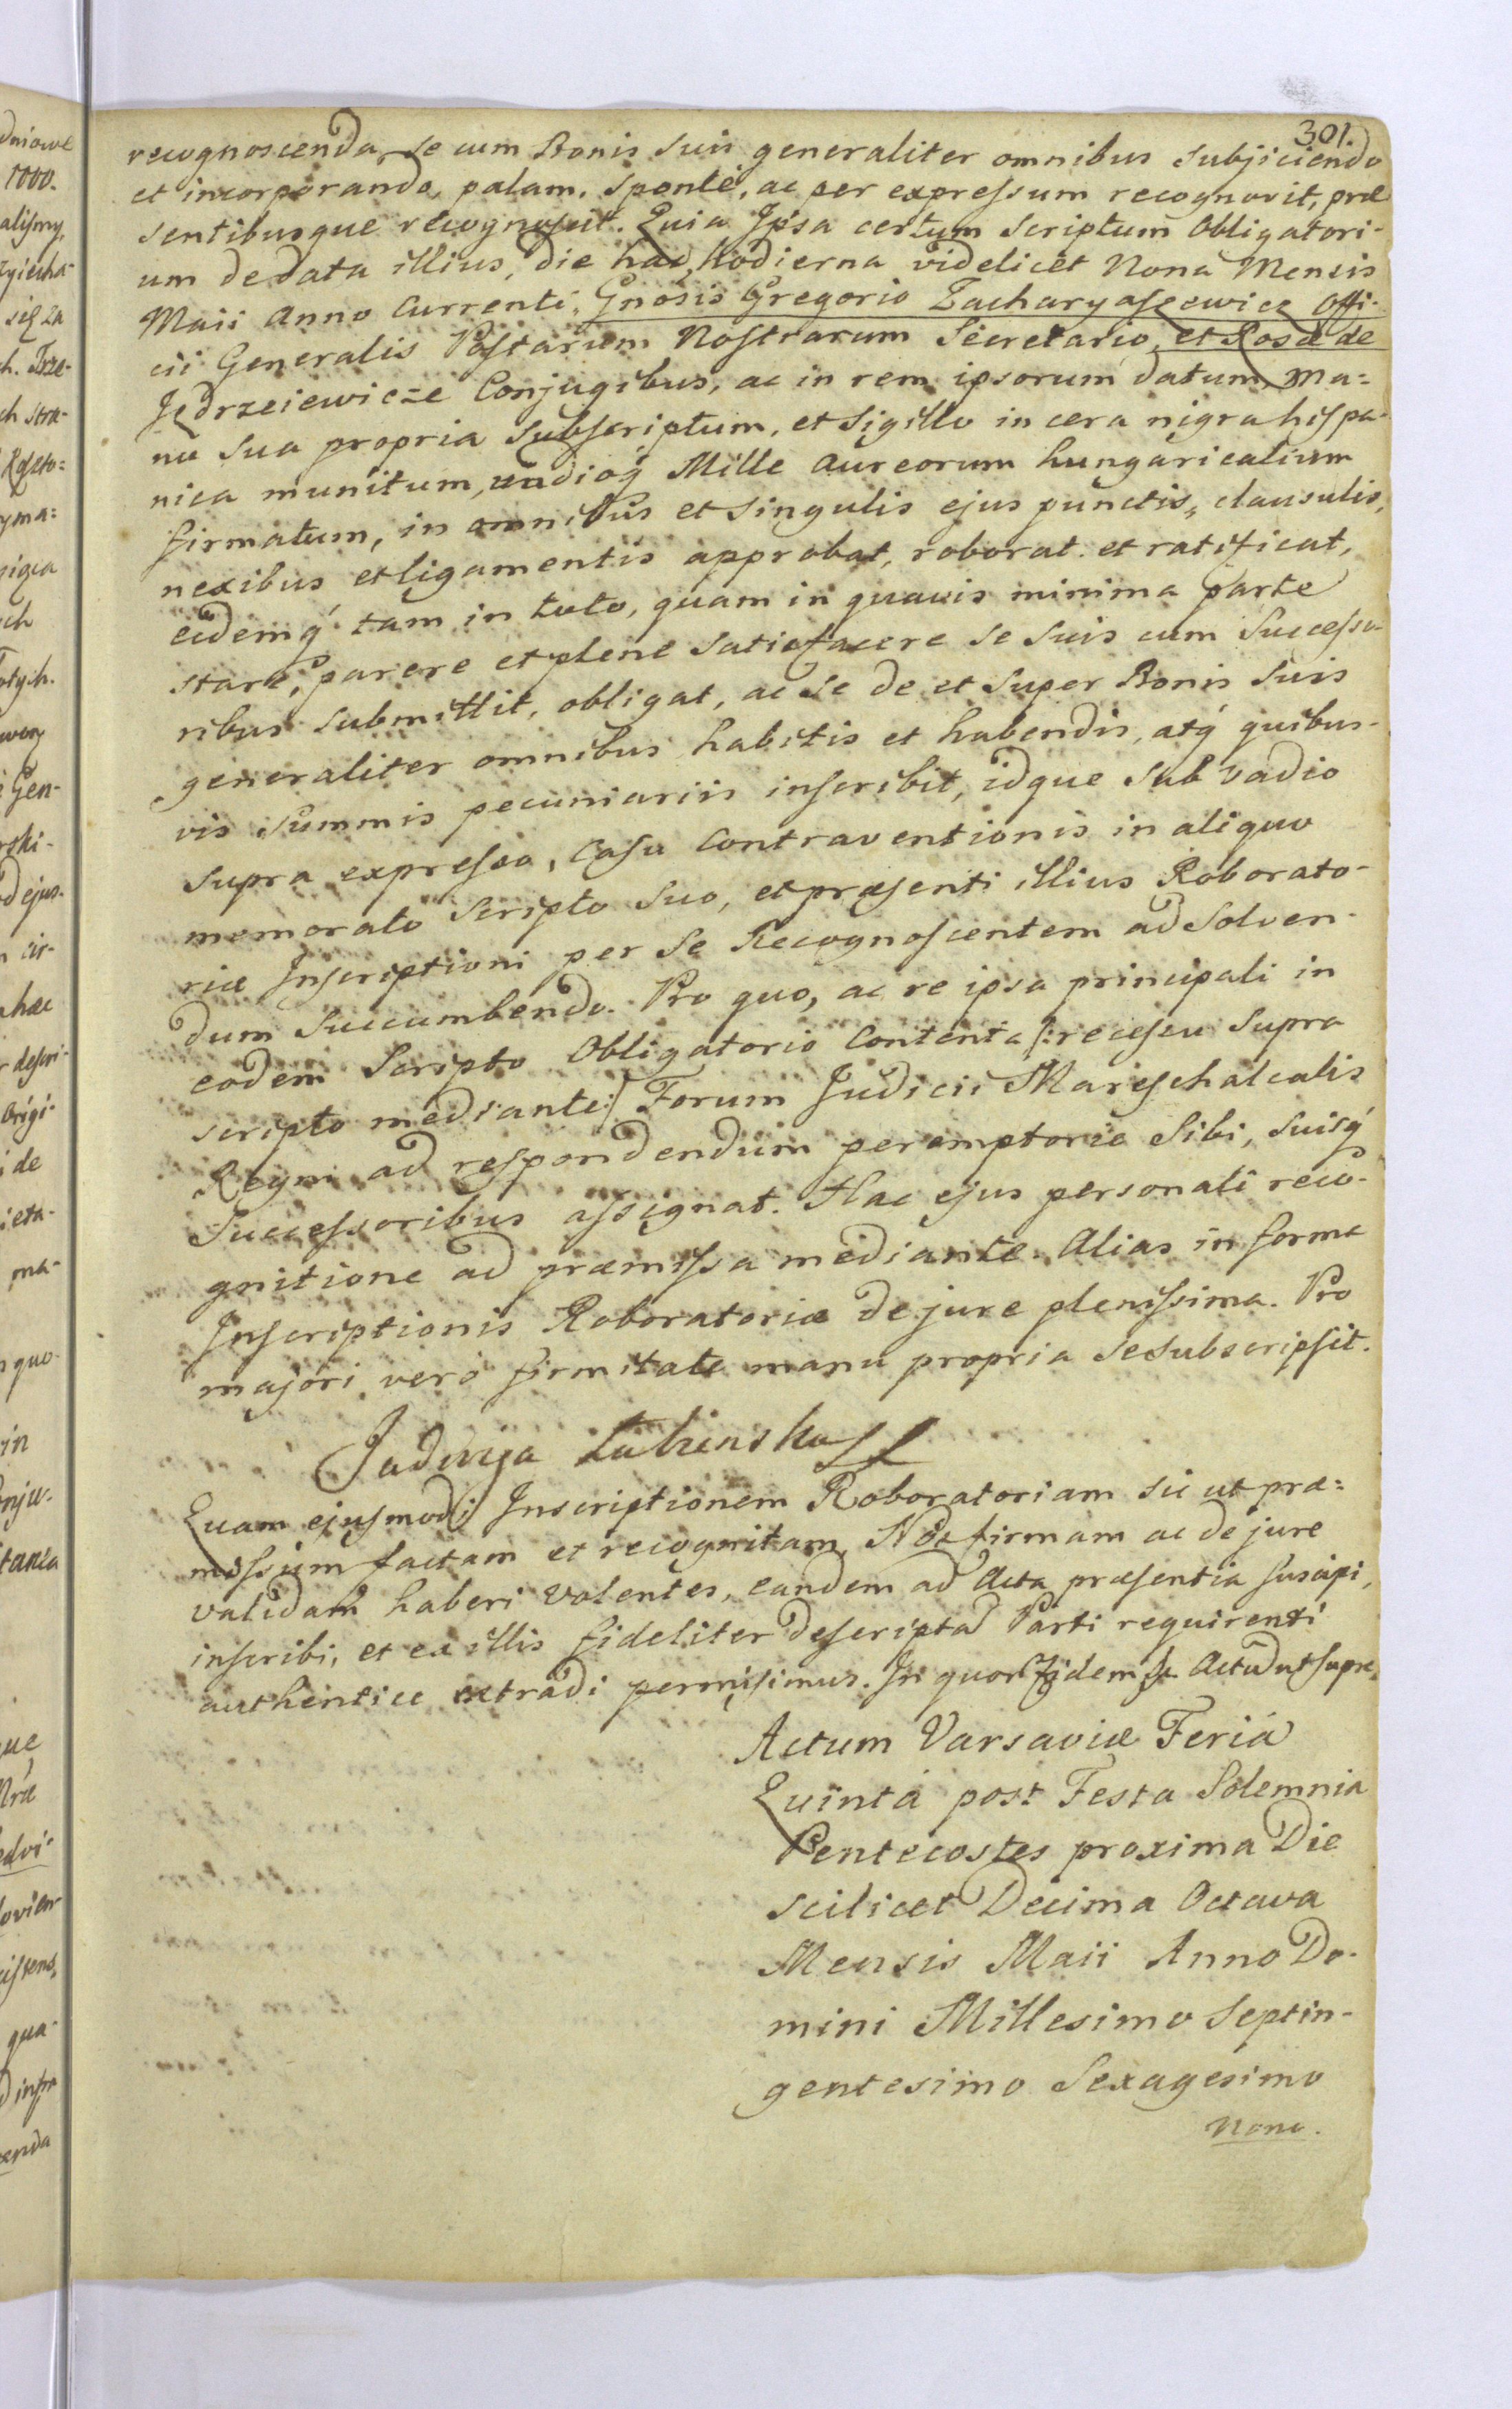 301.
recognoscenda, se cum Bonis Suis generaliter omnibus subjiciendo
et incorporando, palam, sponte, ac per expressum recognovit, præ
sentibusque recognoscit. Quia Ipsa certum Scriptum Obligatori-
um de data illius, die hac, hodierna videlicet Nona Mensis
Maii Anno Currenti, Gnosis Gregorio Zacharyasewicz Offi-
cii Generalis Postarum Nostrarum Secretario, et Rosæ de
Jędrzeiewicze Conjugibus, ac in rem ipsorum datum, Ma=
nu sua propria Subscriptum, et Sigillo in cera nigra hispa-
nica munitum, vadioq́ Mille Aureorum hungaricalium
firmatum, in omnibus et Singulis ejus punctis, clausulis,
nexibus et ligamentis approbat, roborat et ratificat,
eidemq́ tam in toto, quam in quavis minima parte
stare, parere et plene Satisfacere se Suis cum Successo-
ribus Submittit, obligat, ac Se de et Super Bonis Suis
generaliter omnibus habitis et habendis, atq́ quibus-
vis Summis pecuniariis inscribit, idque Sub vadio
Supra expresso, Casu Contraventionis in aliquo
memorato Scripto Suo, et præsenti illius Roborato-
riæ Inscriptioni per Se Recognoscentem ad Solven-
dum Succumbendo. Pro quo, ac re ipsa principali in
eodem Scripto Obligatorio Contenta /: recessu Supra
scripto mediante :/ Forum Judicii Mareschalcalis
Regni ad respondendum peremptorie Sibi, Suisq́
Successoribus assignat. Hac ejus personali reco-
gnitione ad præmissa mediante. Alias in forma
Inscriptionis Roboratoriæ de jure plenissima. Pro
majori vero firmitate manu propria se subscripsit.
Jadwiga Łubienska
Quam ejusmodi Inscriptionem Roboratoriam sic ut præ=
missum factam et recognitam, Nos firmam ac de jure
validam haberi Volentes, eandem ad Acta præsentia suscipi,
inscribi, et ex illis fideliter descriptã Parti requirenti
authentice extradi permisimus. In quor Fidem Actũ ut supra
Actum Varsaviæ Feriá
Quintá post Festa Solemnia
Pentecostes proxima Die
scilicet Decima Octava
Mensis Maii Anno Do-
mini Millesimo Septin-
gentesimo Sexagesimo
Nono.